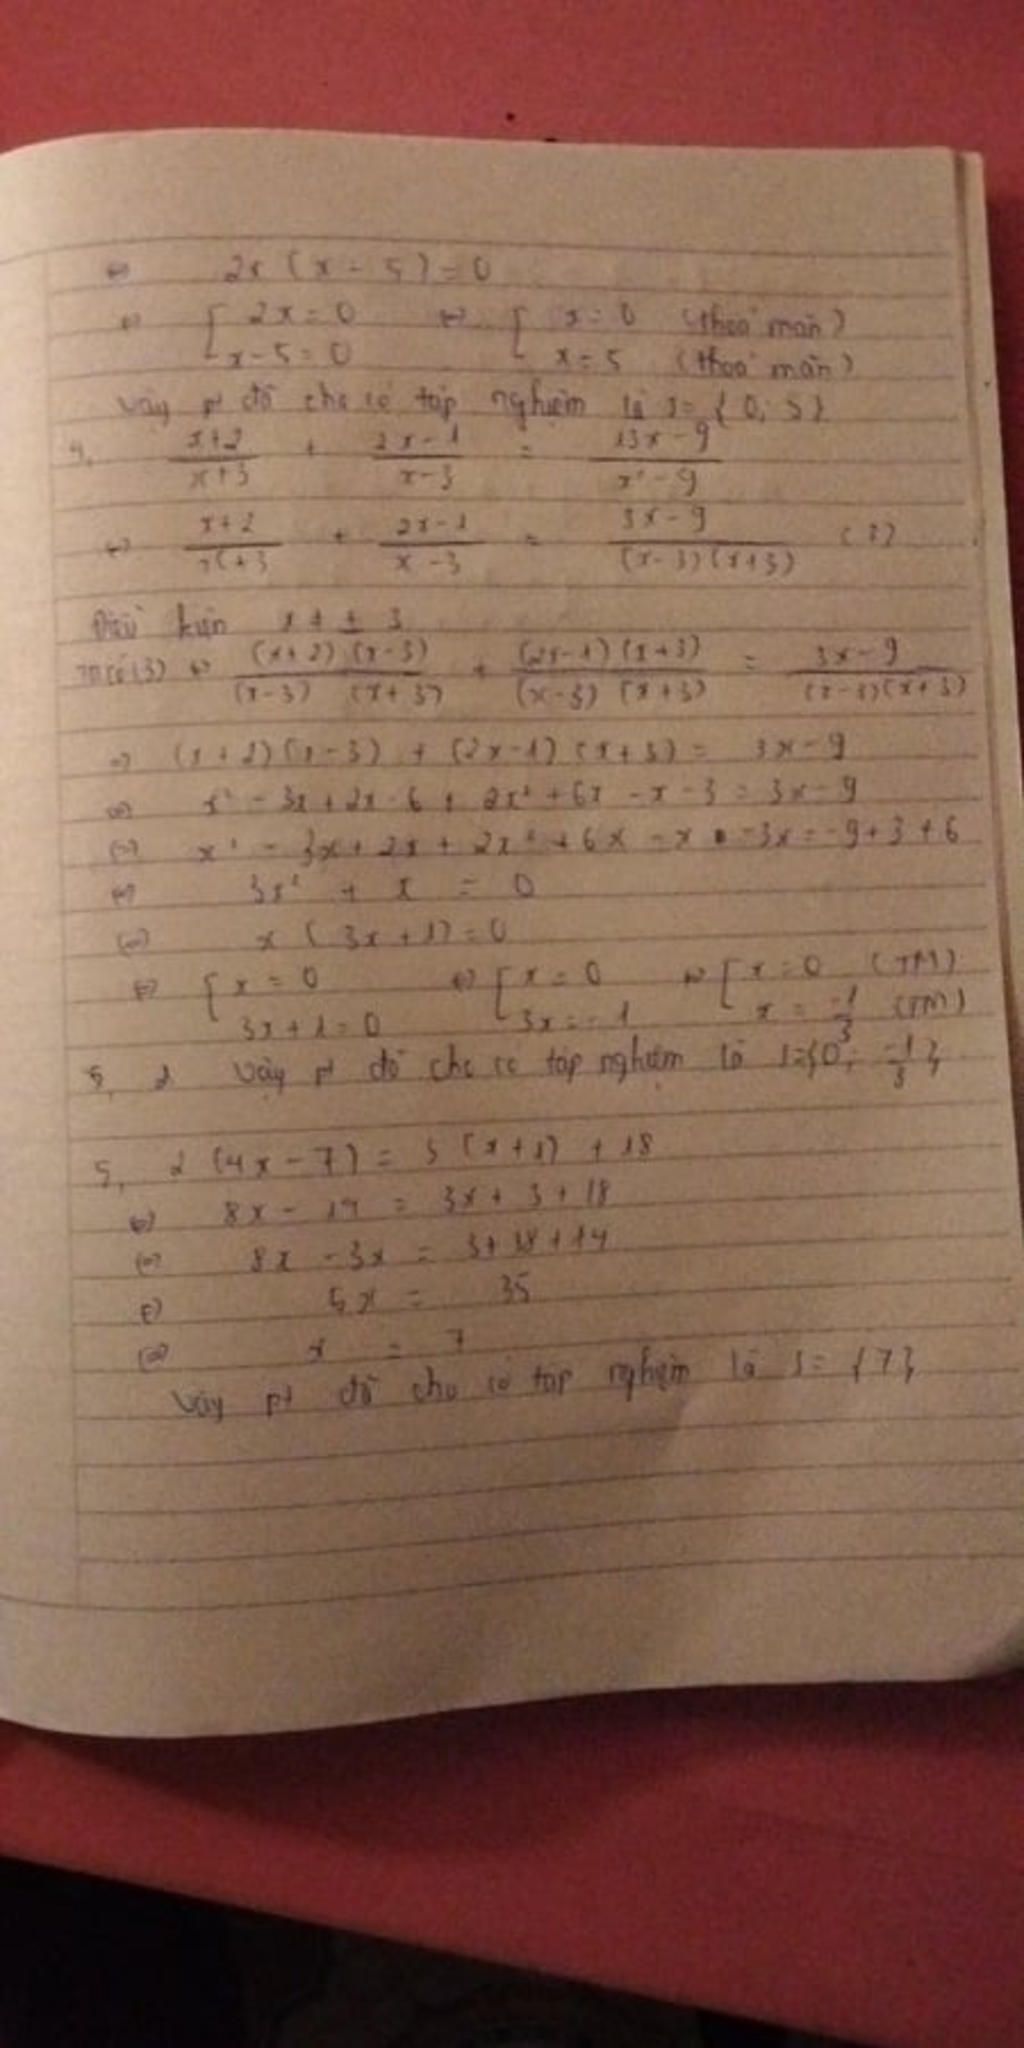 ⇔ 2x (x - 5) = 0
⇔ [ 2x = 0 ⇔ [ x = 0 (thoả mãn)
x - 5 = 0 x = 5 (thoả mãn)
Vậy pt đã cho có tập nghiệm là S = { 0; 5 }
4, (x+2)/(x+3) + (2x-1)/(x-3) = (13x-9)/(x²-9)
⇔ (x+2)/(x+3) + (2x-1)/(x-3) = (3x-9)/((x-3)(x+3))
Điều kiện x ≠ ± 3
(3) ⇔ ((x+2)(x-3))/((x-3)(x+3)) + ((2x-1)(x+3))/((x-3)(x+3)) = (3x-9)/((x-3)(x+3))
⇒ (x+2)(x-3) + (2x-1)(x+3) = 3x-9
⇔ x² - 3x + 2x - 6 + 2x² + 6x - x - 3 = 3x - 9
⇔ x² - 3x + 2x + 2x² + 6x - x - 3x = -9 + 3 + 6
⇔ 3x² + x = 0
⇔ x (3x + 1) = 0
⇔ [ x = 0 ⇔ [ x = 0 ⇔ [ x = 0 (TM)
3x + 1 = 0 3x = -1 x = -1/3 (TM)
5, 2 Vậy pt đã cho có tập nghiệm là S={0; -1/3}
5, 2 (4x - 7) = 3 (x+1) + 18
⇔ 8x - 14 = 3x + 3 + 18
⇔ 8x - 3x = 3 + 18 + 14
⇔ 5x = 35
⇔ x = 7
Vậy pt đã cho có tập nghiệm là S = {7}